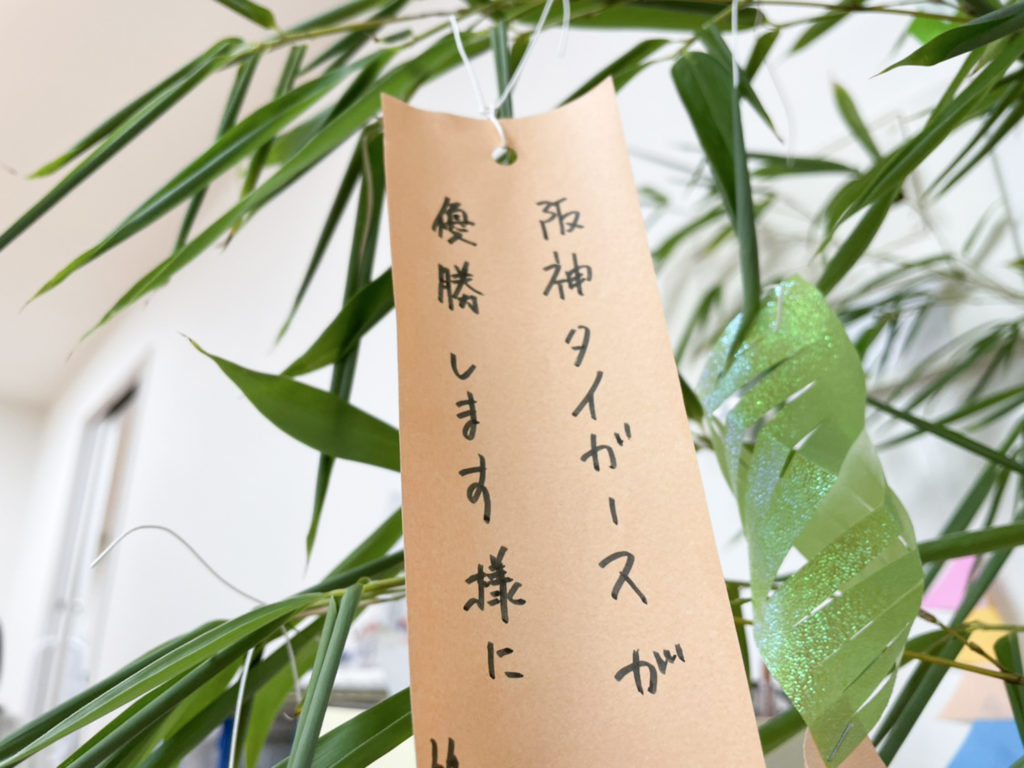 阪神タイガースが
優勝します様に